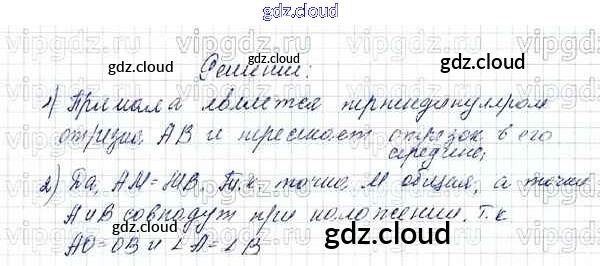 gdz.cloud
gdz.cloud gdz.cloud
Решение:
1) Прямая а является перпендикуляром
gdz.cloud gdz.cloud
отрезка АВ и пересекает отрезок в его
середине;
2) Да, АМ = МВ. Т.к. точка М общая, а точки
А и В совпадут при наложении, т.к
gdz.cloud gdz.cloud
АО = ОВ и ∠А = ∠В
gdz.cloud